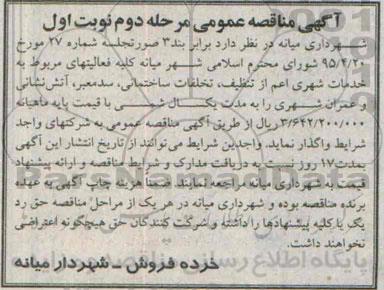 آگهی مناقصه عمومی مرحله دوم نوبت اول
شهرداری میانه در نظر دارد برابر بند۳ صورتجلسه شماره ۲۷ مورخ
۹۵/۴/۲۰ شورای محترم اسلامی شهر میانه کلیه فعالیتهای مربوط به
خدمات شهری اعم از تنظیف، تخلفات ساختمانی، سدمعبر، آتش‌نشانی
و عمران شهری را به مدت یکسال شمسی با قیمت پایه ماهیانه
۳/۶۴۲/۲۰۰/۰۰۰ریال از طریق آگهی مناقصه عمومی به شرکتهای واجد
شرایط واگذار نماید. واجدین شرایط می‌توانند از تاریخ انتشار این آگهی
بمدت۱۷ روز نسبت به دریافت مدارک و شرایط مناقصه و ارائه پیشنهاد
قیمت به شهرداری میانه مراجعه نمایند. ضمناً هزینه چاپ آگهی به عهده
برنده مناقصه بوده و شهرداری میانه در هر یک از مراحل مناقصه حق رد
یک یا کلیه پیشنهادها را داشته و شرکت کنندگان حق هیچگونه اعتراضی
نخواهند داشت.
خرده فروش ــ شهردار میانه
ParsNamadData
پایگاه اطلاع رسانی